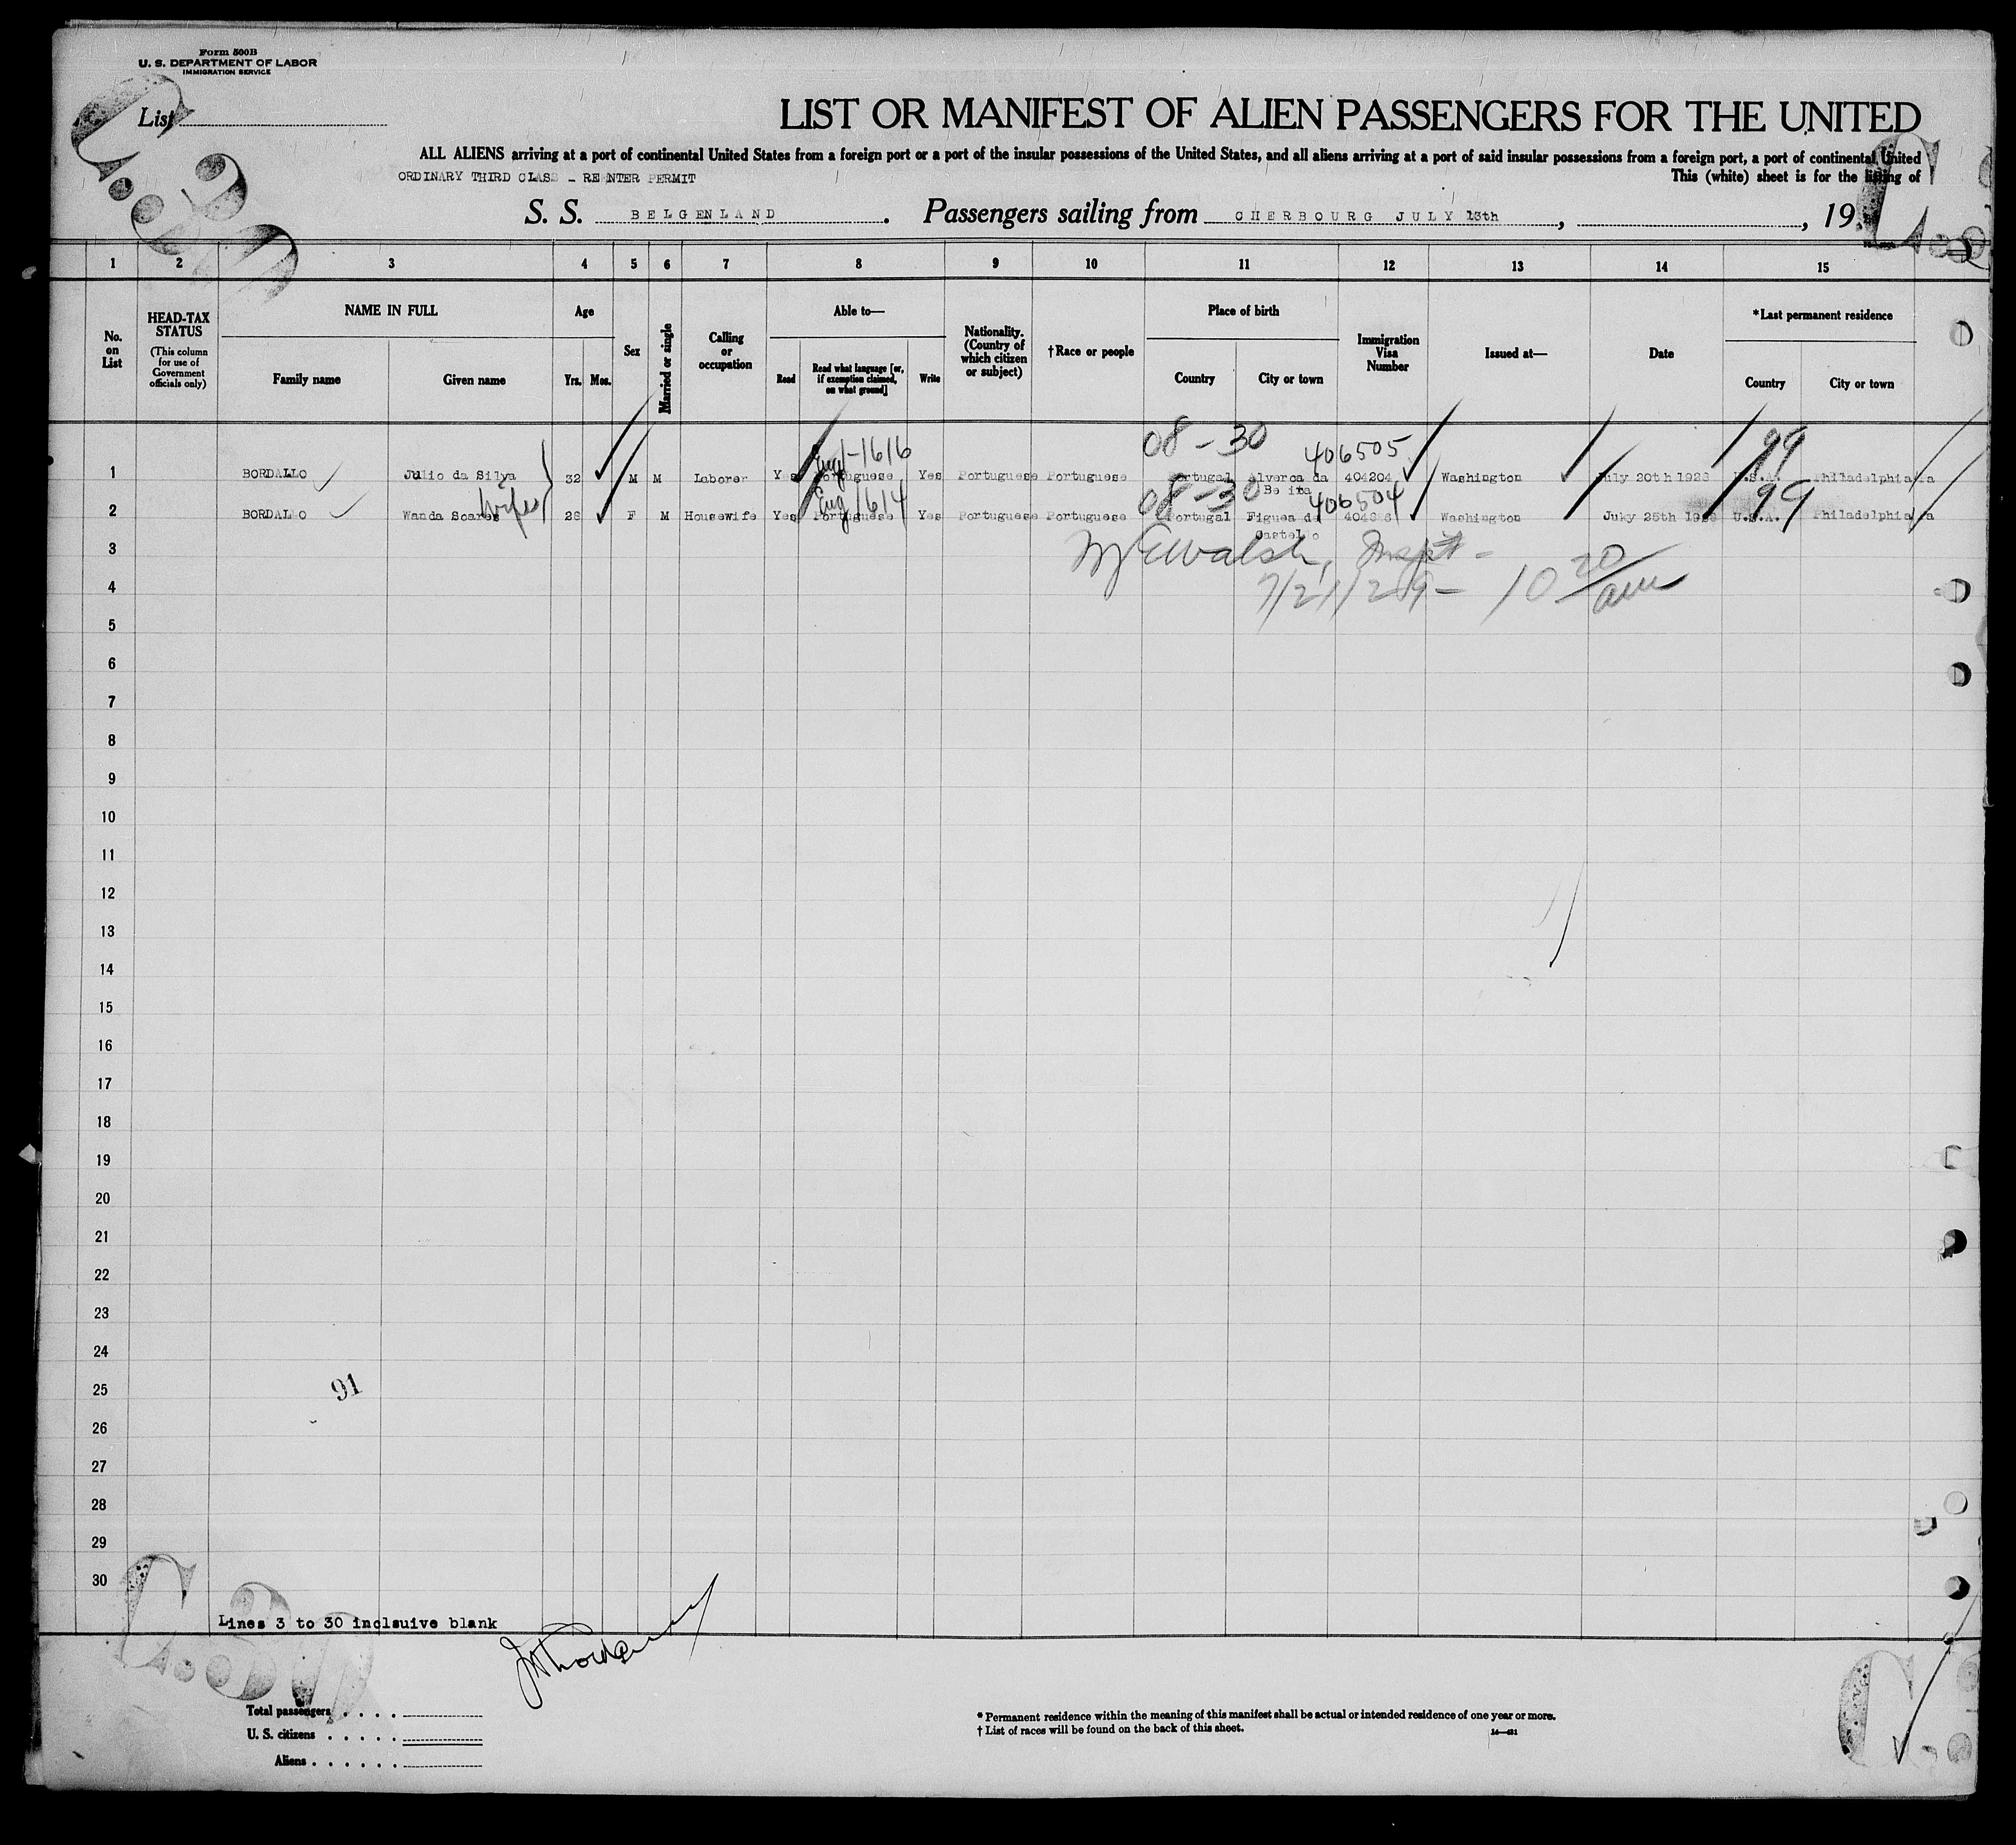 Form 500B
U. S. DEPARTMENT OF LABOR
IMMIGRATION SERVICE
List
LIST OR MANIFEST OF ALIEN PASSENGERS FOR THE UNITED
ALL ALIENS arriving at a port of continental United States from a foreign port or a port of the insular possessions of the United States, and all aliens arriving at a port of said insular possessions from a foreign port, a port of continental United
ORDINARY THIRD CLASS - REENTER PERMIT
This (white) sheet is for the listing of
S. S. BELGENLAND. Passengers sailing from CHERBOURG JULY 13th, , 19
1 2 3 4 5 6 7 8 9 10 11 12 13 14 15
No. on List
HEAD-TAX STATUS
(This column for use of Government officials only)
NAME IN FULL
Family name Given name
Age
Yrs. Mos.
Sex
Married or single
Calling or occupation
Able to—
Read
Read what language [or, if exemption claimed, on what ground]
Write
Nationality. (Country of which citizen or subject)
†Race or people
Place of birth
Country City or town
Immigration Visa Number
Issued at—
Date
*Last permanent residence
Country City or town
Eng-1616 08-30 406505 99
1 BORDALLO Julio da Silva 32 M M Laborer Yes Portuguese Yes Portuguese Portuguese Portugal Alverca da 404204 Washington July 20th 1928 U.S.A. Philadelphia
wife Eng 1614 08-30 406504 99
2 BORDALLO Wanda Soares 28 F M Housewife Yes Portuguese Yes Portuguese Portuguese Portugal Figuea de Washington Juky 25th U.S.A. Philadelphia
Castello
3 Walsh, Inspt-
4 7/21/29- 10 20/am
5
6
7
8
9
10
11
12
13
14
15
16
17
18
19
20
21
22
23
24
25 91
26
27
28
29
30
Lines 3 to 30 inclsuive blank
Total passengers
U. S. citizens
Aliens
* Permanent residence within the meaning of this manifest shall be actual or intended residence of one year or more.
† List of races will be found on the back of this sheet.